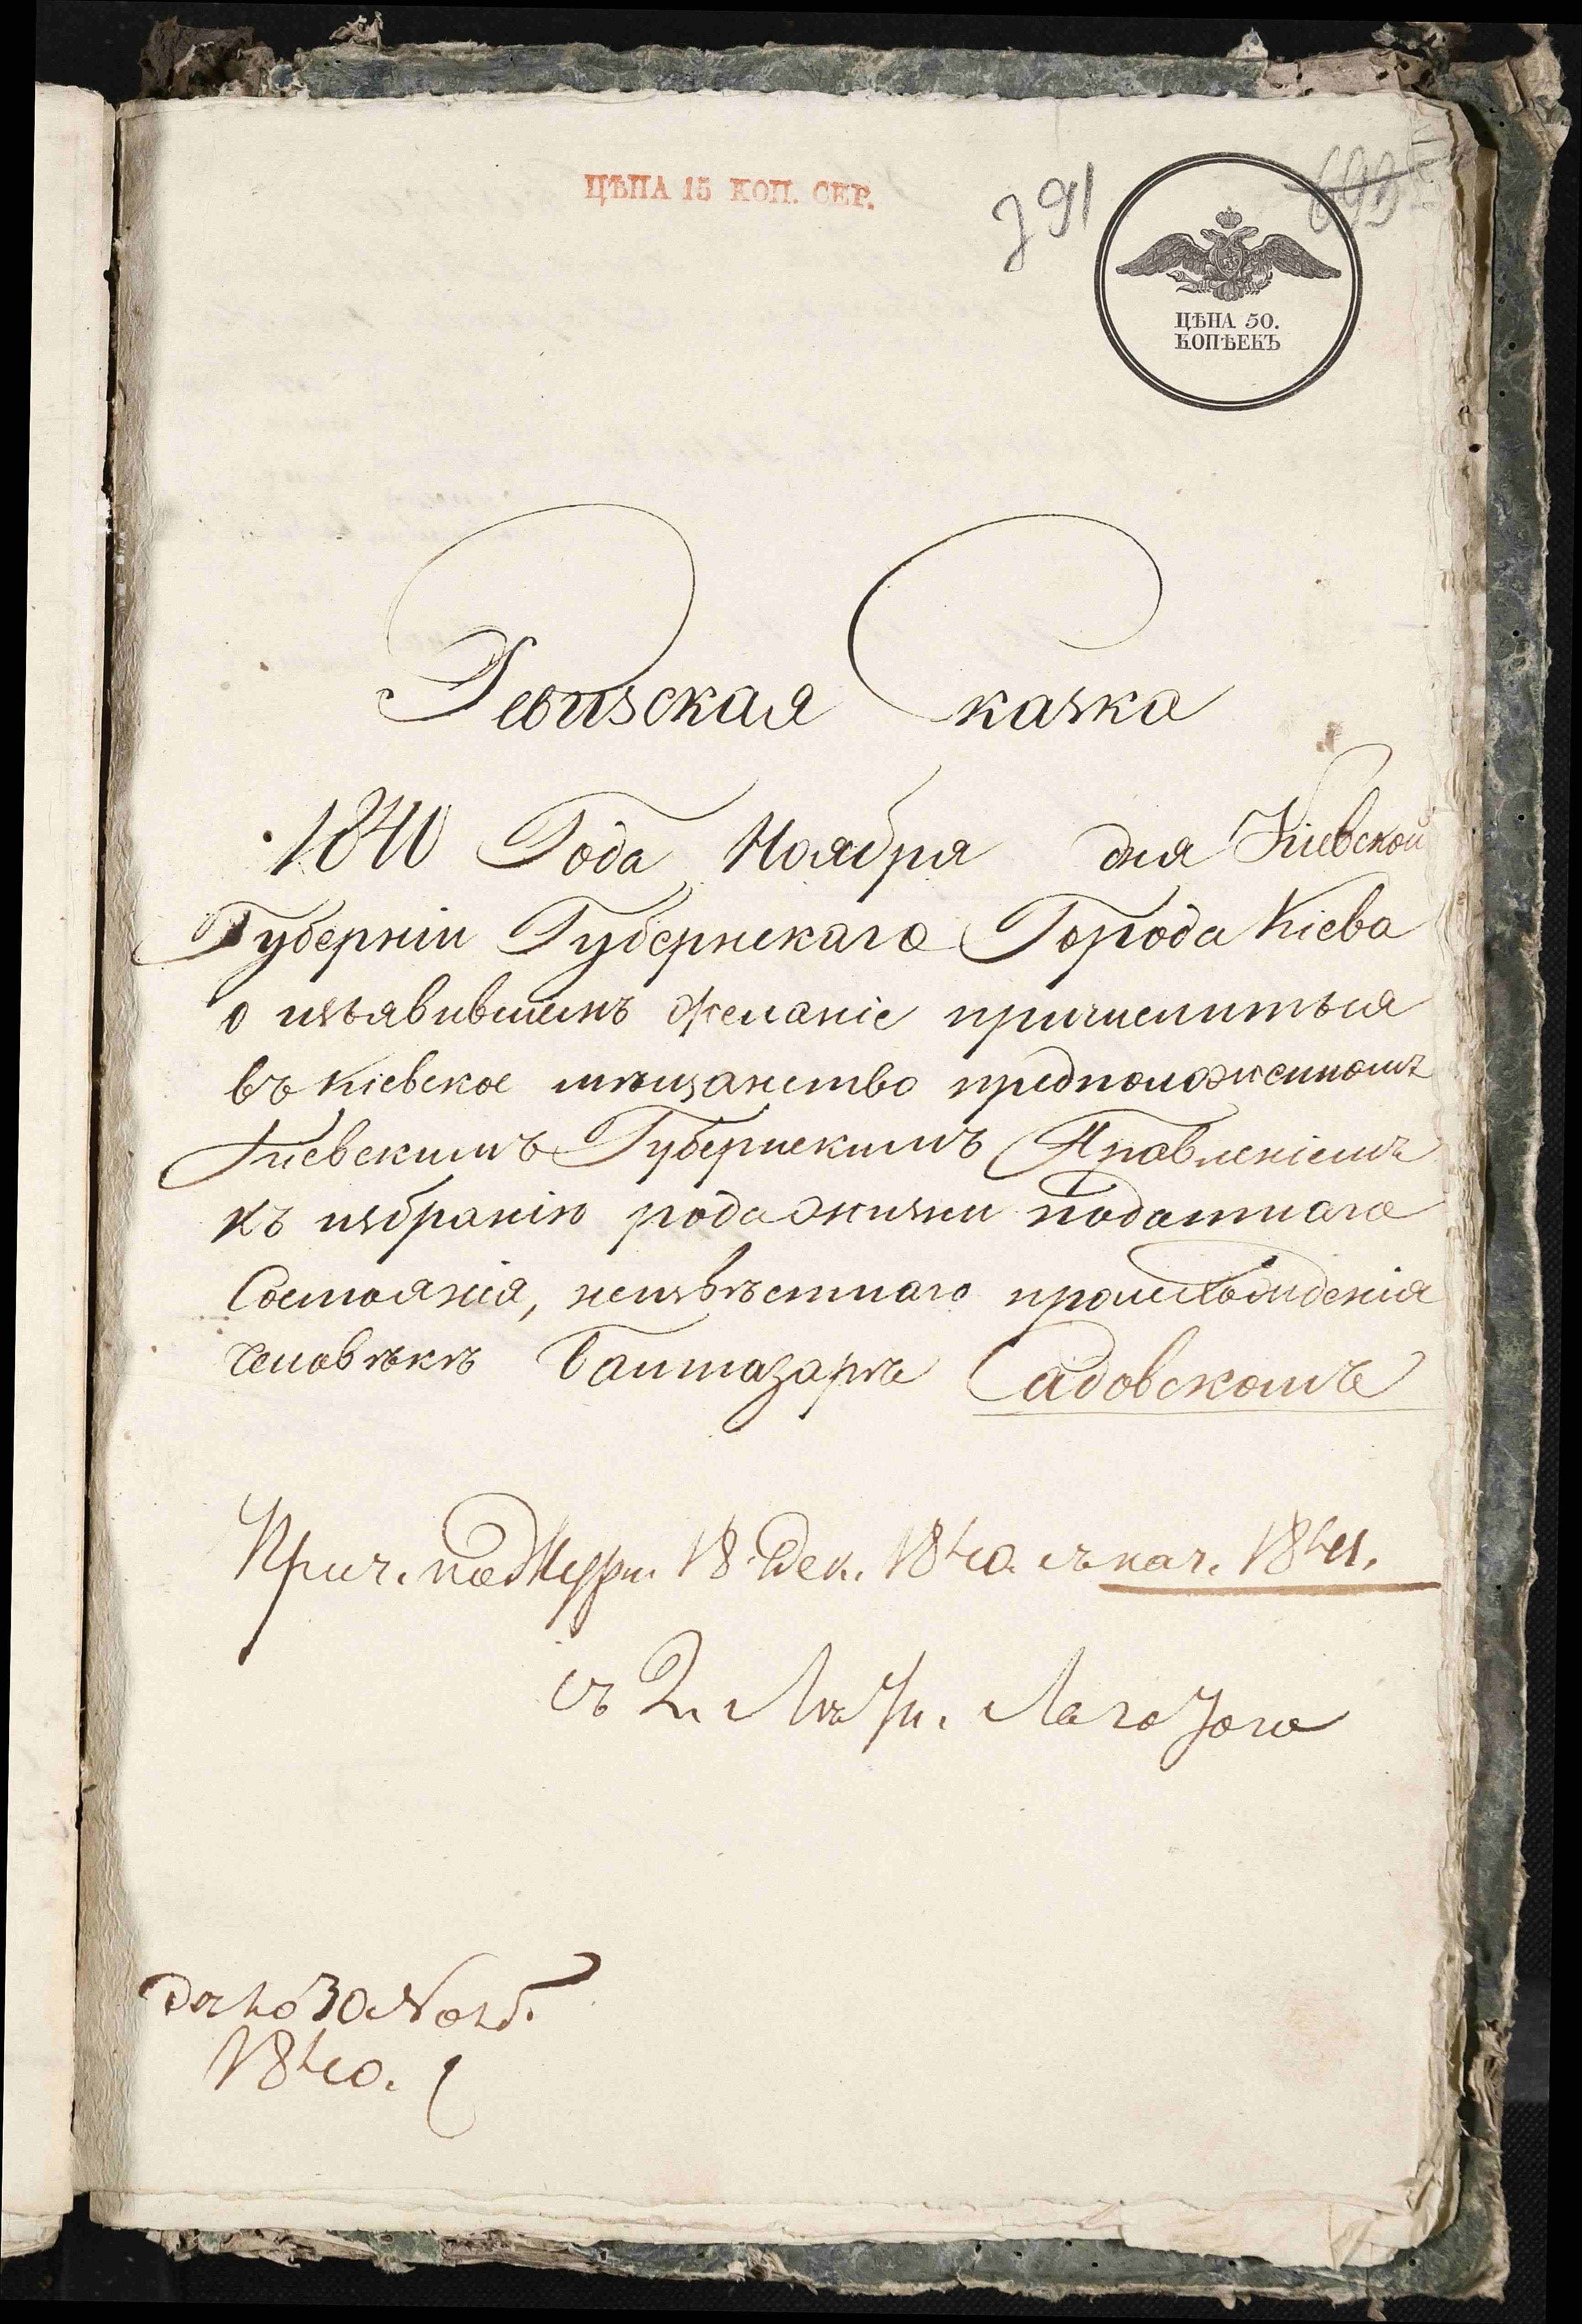 ЦѢНА 15 КОП. СЕР.
791
693
ЦѢНА 50.
КОПѢЕКЪ
Ревизская Сказка
1840 Года Ноября дня Кіевской
Губерніи Губернскаго Города Кіева
о изъявившемъ желаніе причислиться
въ Кіевское мѣщанство предположенномъ
Кіевскимъ Губернскимъ Правленіемъ
къ избранію рода жизни податнаго
Состоянія, неизвѣстнаго происхожденія
человѣкѣ Балтазарѣ Садовскомъ
Прич. по Журн. 18 Дек. 1840. съ нач. 1841.
съ 2.
30 Нояб.
1840.